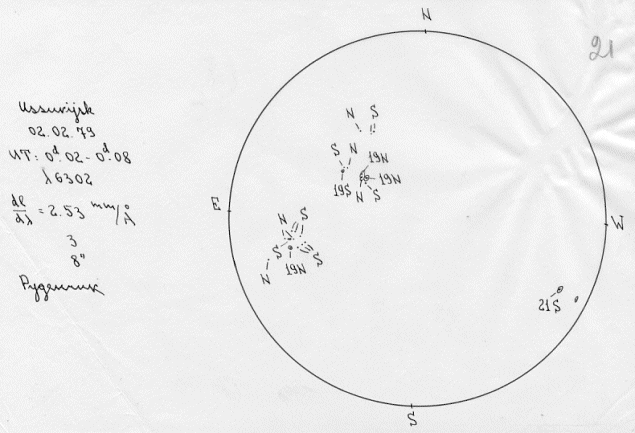 N
21
Ussurijsk
02.02.79
UT: 0ᵈ.02 - 0ᵈ.08
λ 6302
dl/dλ = 2.53 mm/Å
3
8"
Руденчик
N S
S N 19N
19N
19S N S
E
W
N S
S S
N 19N
21S
S